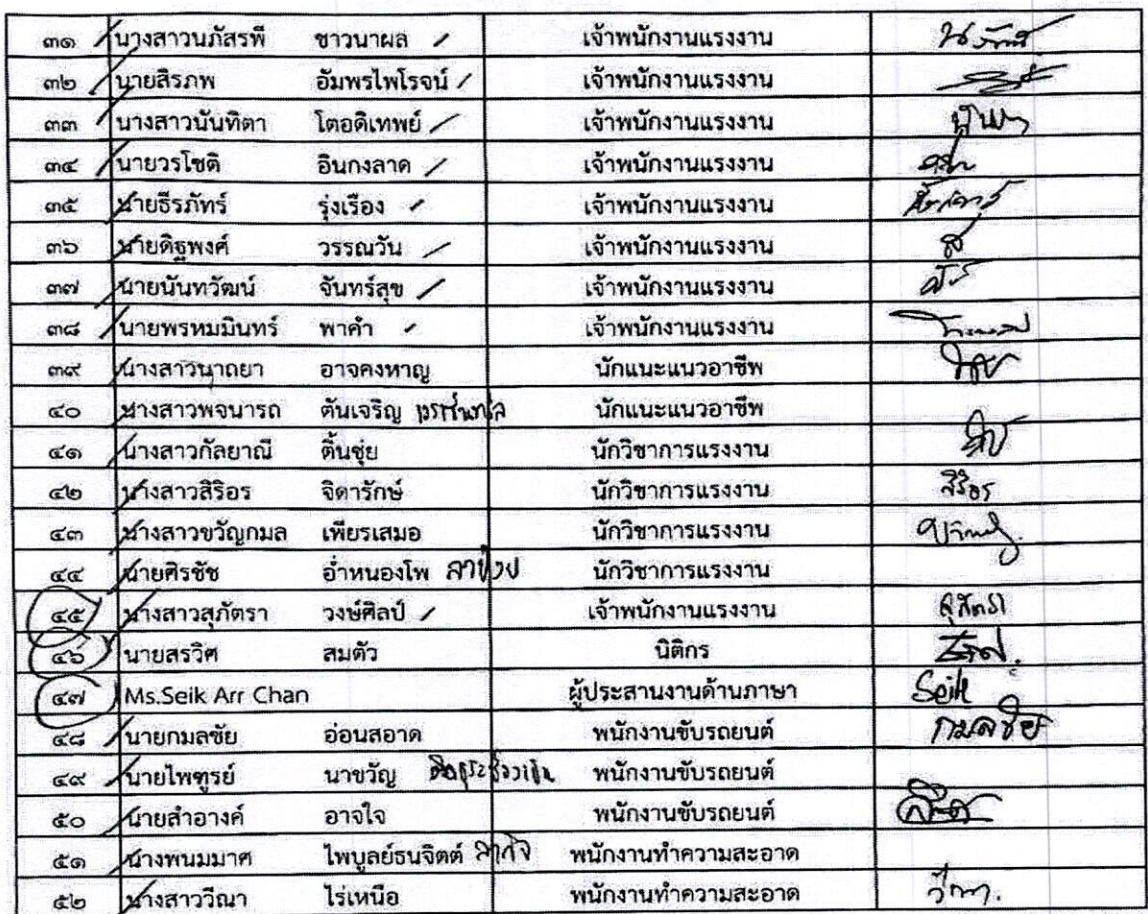 ๓๑ นางสาวนภัสรพี ชาวนาผล เจ้าพนักงานแรงงาน
๓๒ นายสิรภพ อัมพรไพโรจน์ เจ้าพนักงานแรงงาน
๓๓ นางสาวนันทิตา โตอดิเทพย์ เจ้าพนักงานแรงงาน
๓๔ นายวรโชติ อินกงลาด เจ้าพนักงานแรงงาน
๓๕ นายธีรภัทร์ รุ่งเรือง เจ้าพนักงานแรงงาน
๓๖ นายดิฐพงศ์ วรรณวัน เจ้าพนักงานแรงงาน
๓๗ นายนันทวัฒน์ จันทร์สุข เจ้าพนักงานแรงงาน
๓๘ นายพรหมมินทร์ พาคำ เจ้าพนักงานแรงงาน
๓๙ นางสาวนาถยา อาจคงหาญ นักแนะแนวอาชีพ
๔๐ นางสาวพจนารถ ตันเจริญ นักแนะแนวอาชีพ
๔๑ นางสาวกัลยาณี ติ้นชุ่ย นักวิชาการแรงงาน
๔๒ นางสาวสิริอร จิดารักษ์ นักวิชาการแรงงาน สิริอร
๔๓ นางสาวขวัญกมล เพียรเสมอ นักวิชาการแรงงาน
๔๔ นายศิรชัช อ่ำหนองโพ ลาป่วย นักวิชาการแรงงาน
๔๕ นางสาวสุภัตรา วงษ์ศิลป์ เจ้าพนักงานแรงงาน สุภัตรา
๔๖ นายสรวิศ สมตัว นิติกร
๔๗ Ms.Seik Arr Chan ผู้ประสานงานด้านภาษา Seik
๔๘ นายกมลชัย อ่อนสอาด พนักงานขับรถยนต์ กมลชัย
๔๙ นายไพฑูรย์ นาขวัญ พนักงานขับรถยนต์
๕๐ นายสำอางค์ อาจใจ พนักงานขับรถยนต์
๕๑ นางพนมมาศ ไพบูลย์ธนจิตต์ ลากิจ พนักงานทำความสะอาด
๕๒ นางสาววีณา ไร่เหนือ พนักงานทำความสะอาด วีณา